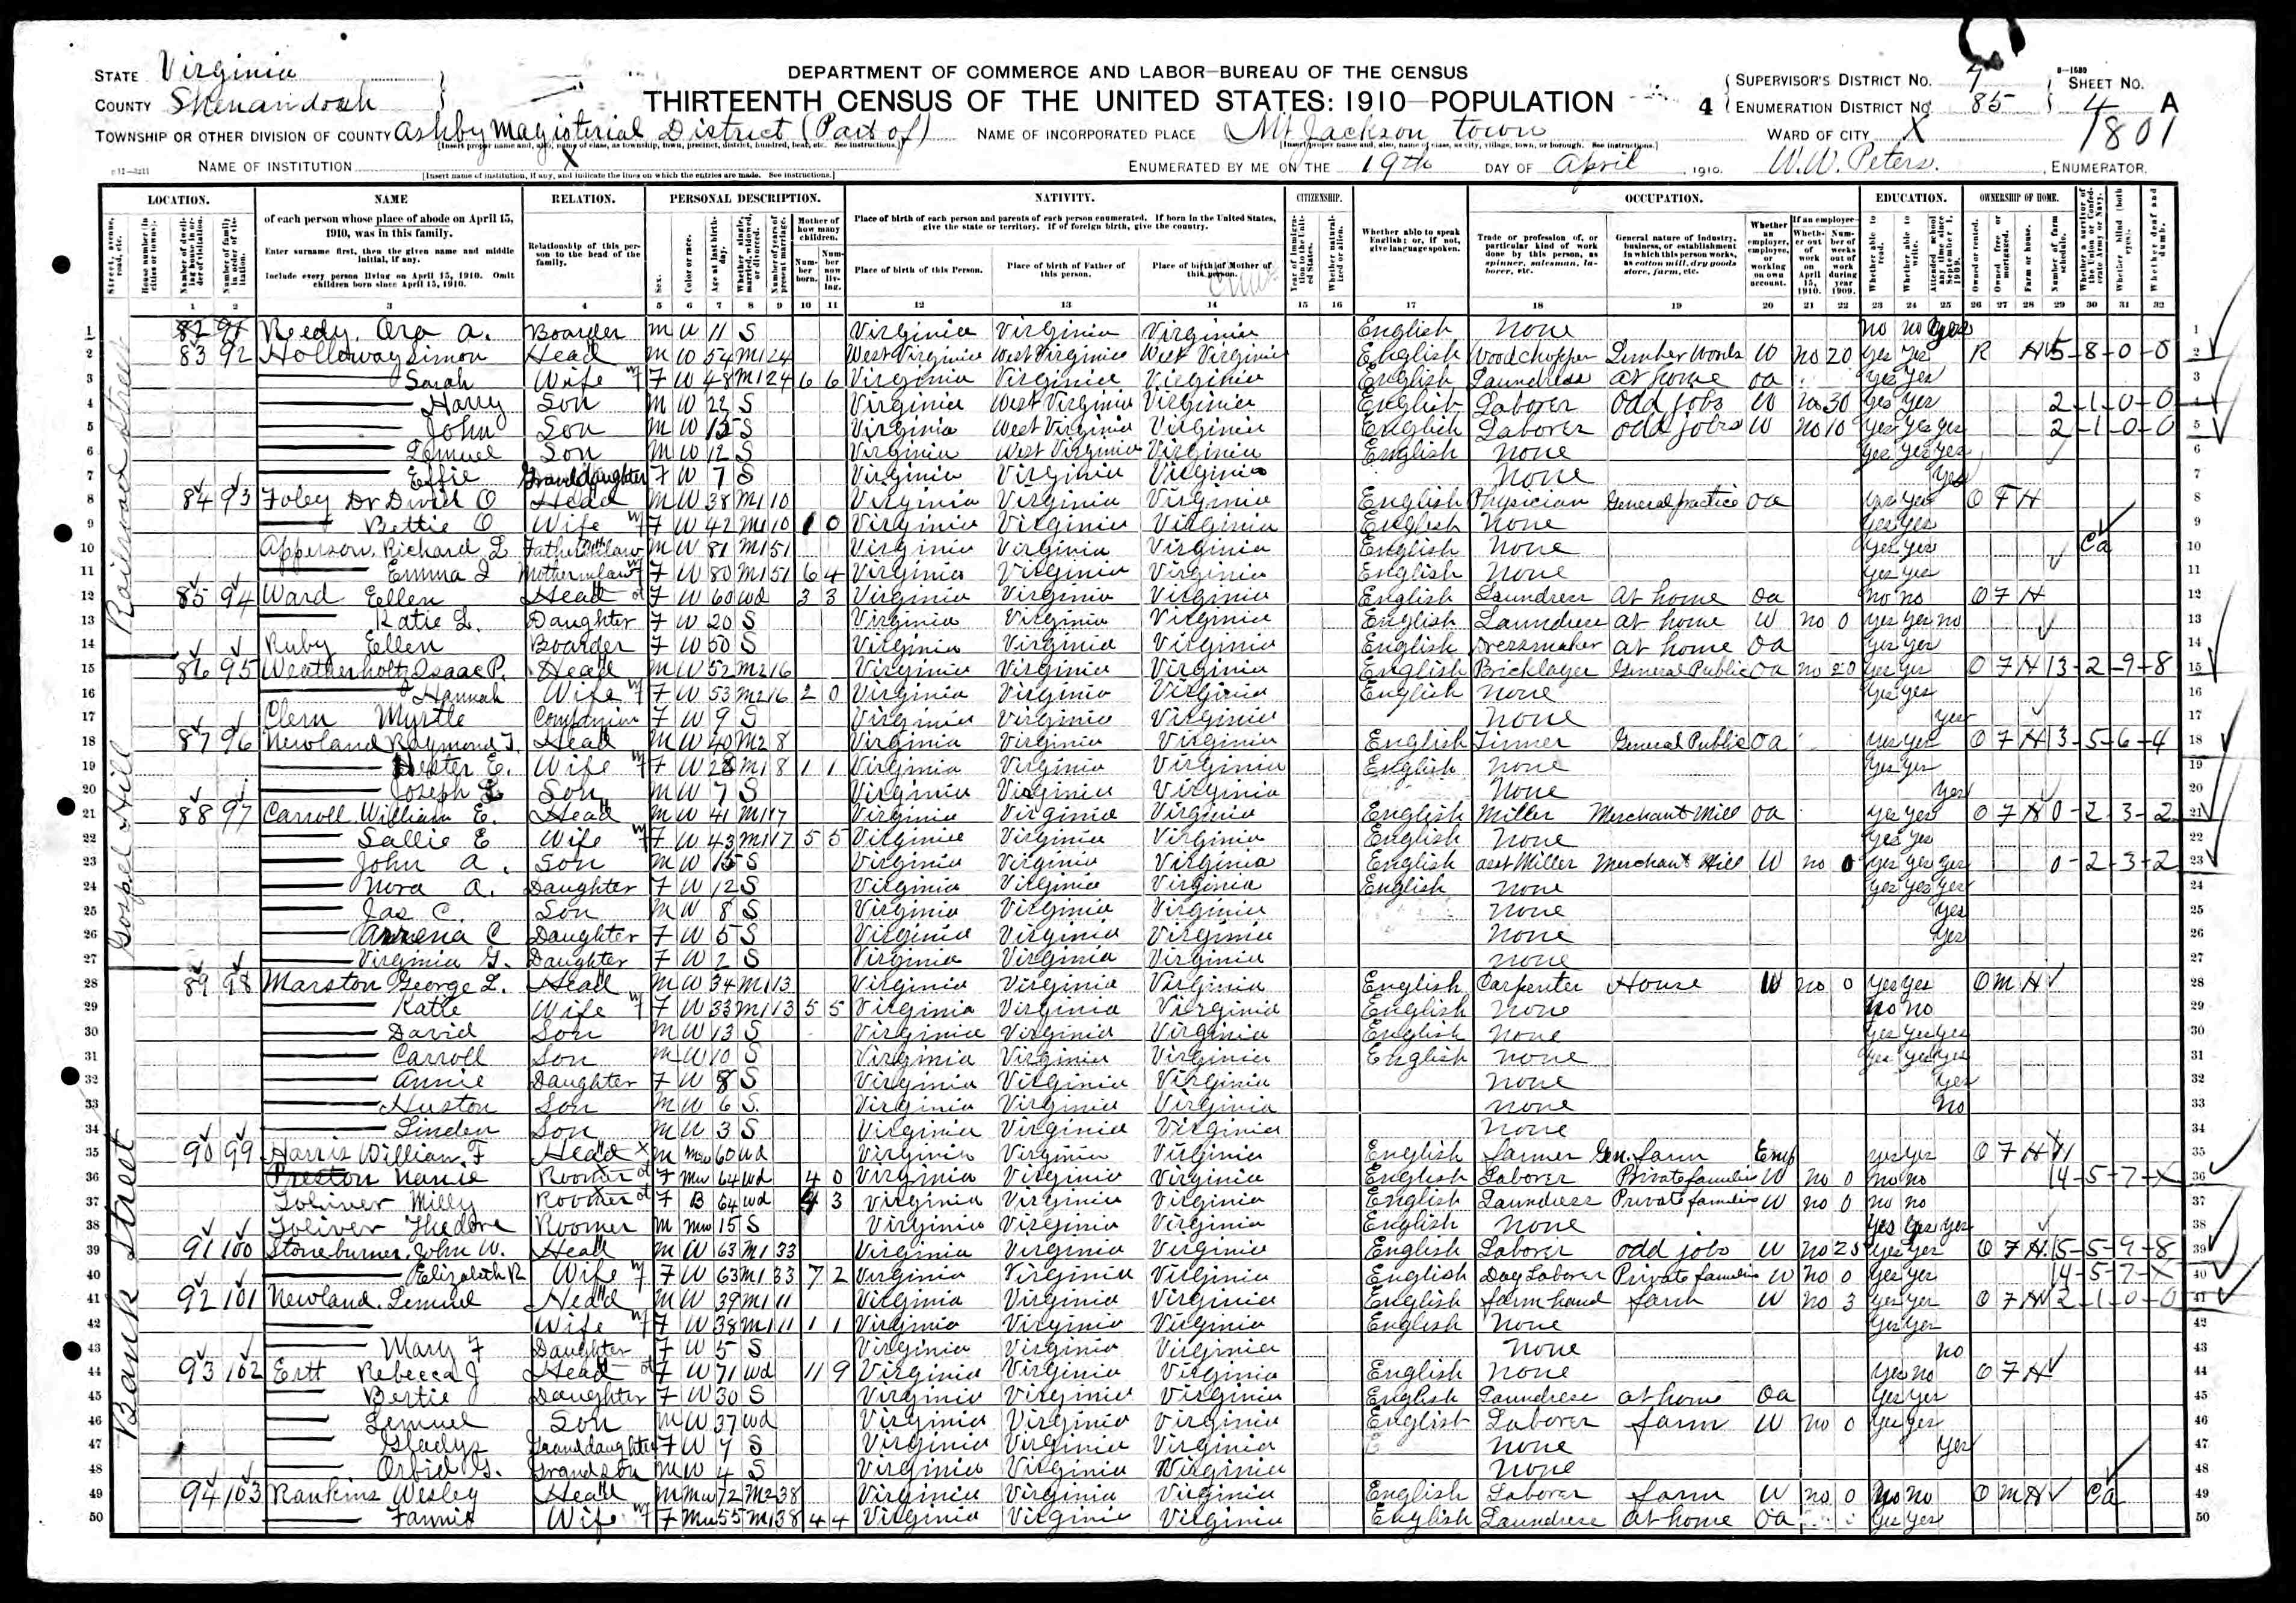 STATE Virginia
COUNTY Shenandoah
DEPARTMENT OF COMMERCE AND LABOR—BUREAU OF THE CENSUS
THIRTEENTH CENSUS OF THE UNITED STATES: 1910—POPULATION
SUPERVISOR'S DISTRICT No. 7
ENUMERATION DISTRICT No. 85
SHEET No. 4 A
1801
TOWNSHIP OR OTHER DIVISION OF COUNTY Ashby Magisterial District (Part of)
NAME OF INCORPORATED PLACE Mt Jackson town
WARD OF CITY X
NAME OF INSTITUTION X
ENUMERATED BY ME ON THE 19th DAY OF April, 1910. W.W. Peters, ENUMERATOR.
LOCATION. NAME RELATION. PERSONAL DESCRIPTION. NATIVITY. CITIZENSHIP. OCCUPATION. EDUCATION. OWNERSHIP OF HOME.
of each person whose place of abode on April 15, 1910, was in this family.
Enter surname first, then the given name and middle initial, if any.
Include every person living on April 15, 1910. Omit children born since April 15, 1910.
Relationship of this person to the head of the family.
Place of birth of each person and parents of each person enumerated. If born in the United States, give the state or territory. If of foreign birth, give the country.
Place of birth of this Person. Place of birth of Father of this person. Place of birth of Mother of this person.
Whether able to speak English; or, if not, give language spoken.
Railroad Street
Gospel Hill
Bank Street
1 82 91 Reedy, Ora A. Boarder M W 11 S Virginia Virginia Virginia English None no no yes
2 83 92 Holloway Simon Head M W 54 M1 24 West Virginia West Virginia West Virginia English Woodchopper Lumber Woods W no 20 yes yes R H 5-8-0-0
3 Sarah Wife F W 48 M1 24 6 6 Virginia Virginia Virginia English Laundress at home oa yes yes
4 Harry Son M W 22 S Virginia West Virginia Virginia English Laborer odd jobs W no 30 yes yes 2-1-0-0
5 John Son M W 15 S Virginia West Virginia Virginia English Laborer odd jobs W no 10 yes yes yes 2-1-0-0
6 Lemuel Son M W 12 S Virginia West Virginia Virginia English None yes yes yes
7 Effie Granddaughter F W 7 S Virginia Virginia Virginia None yes
8 84 93 Foley Dr David O Head M W 38 M1 10 Virginia Virginia Virginia English Physician General practice oa yes yes O F H
9 Bettie O Wife F W 42 M1 10 1 0 Virginia Virginia Virginia English None yes yes
10 Apperson, Richard L Father in law M W 81 M1 51 Virginia Virginia Virginia English None yes yes ca
11 Emma J Mother in law F W 80 M1 51 6 4 Virginia Virginia Virginia English None yes yes
12 85 94 Ward Ellen Head F W 60 wd 3 3 Virginia Virginia Virginia English Laundress At home oa no no O F H
13 Katie L. Daughter F W 20 S Virginia Virginia Virginia English Laundress at home W no 0 yes yes no
14 Ruby Ellen Boarder F W 50 S Virginia Virginia Virginia English Dressmaker at home oa yes yes
15 86 95 Weatherholtz Isaac P. Head M W 52 M2 16 Virginia Virginia Virginia English Bricklayer General Public oa no 20 yes yes O F H 13-2-9-8
16 Hannah Wife F W 53 M2 16 2 0 Virginia Virginia Virginia English None yes yes
17 Clem Myrtle Companion F W 9 S Virginia Virginia Virginia None yes
18 87 96 Newland Raymond T. Head M W 40 M2 8 Virginia Virginia Virginia English Tinner General Public oa yes yes O F H 3-5-6-4
19 Hester E. Wife F W 28 M1 8 1 1 Virginia Virginia Virginia English None yes yes
20 Joseph Son M W 7 S Virginia Virginia Virginia None yes
21 88 97 Carroll William E. Head M W 41 M1 17 Virginia Virginia Virginia English Miller Merchant Mill oa yes yes O F H 0-2-3-2
22 Sallie E Wife F W 43 M1 17 5 5 Virginia Virginia Virginia English None yes yes
23 John A. Son M W 15 S Virginia Virginia Virginia English asst Miller Merchant Mill W no 0 yes yes yes 0-2-3-2
24 Nora A. Daughter F W 12 S Virginia Virginia Virginia English None yes yes yes
25 Jas C. Son M W 8 S Virginia Virginia Virginia None yes
26 C Daughter F W 5 S Virginia Virginia Virginia None yes
27 Virginia G. Daughter F W 2 S Virginia Virginia Virginia None
28 89 98 Marston George L. Head M W 34 M1 13 Virginia Virginia Virginia English Carpenter House W no 0 yes yes O M H
29 Katie Wife F W 33 M1 13 5 5 Virginia Virginia Virginia English None no no
30 David Son M W 13 S Virginia Virginia Virginia English None yes yes yes
31 Carroll Son M W 10 S Virginia Virginia Virginia English None yes yes yes
32 Annie Daughter F W 8 S Virginia Virginia Virginia None yes
33 Huston Son M W 6 S Virginia Virginia Virginia None no
34 Linden Son M W 3 S Virginia Virginia Virginia None
35 90 99 Harris William F Head M mu 60 wd Virginia Virginia Virginia English Farmer Gen. farm Emp yes yes O F H
36 Preston Nanie Roomer F mu 64 wd 4 0 Virginia Virginia Virginia English Laborer Private families W no 0 no no 14-5-7-X
37 Toliver Milly Roomer F B 64 wd 4 3 Virginia Virginia Virginia English Laundress Private families W no 0 no no
38 Toliver Thedore Roomer M mu 15 S Virginia Virginia Virginia English None yes yes yes
39 91 100 Stoneburner, John W. Head M W 63 M1 33 Virginia Virginia Virginia English Laborer odd jobs W no 25 yes yes O F H 5-5-9-8
40 Elizabeth R Wife F W 63 M1 33 7 2 Virginia Virginia Virginia English Day Laborer Private families W no 0 yes yes 14-5-7-X
41 92 101 Newland, Lemuel Head M W 39 M1 11 Virginia Virginia Virginia English farm hand farm W no 3 yes yes O F H 2-1-0-0
42 Wife F W 38 M1 11 1 1 Virginia Virginia Virginia English None yes yes
43 Mary F Daughter F W 5 S Virginia Virginia Virginia None no
44 93 102 Ertt Rebecca J Head F W 71 wd 11 9 Virginia Virginia Virginia English None yes no O F H
45 Bertie Daughter F W 30 S Virginia Virginia Virginia English Laundress at home oa yes yes
46 Lemuel Son M W 37 wd Virginia Virginia Virginia English Laborer farm W no 0 yes yes
47 Gladys Granddaughter F W 7 S Virginia Virginia Virginia None yes
48 Orbid G. Grandson M W 4 S Virginia Virginia Virginia None
49 94 103 Rankins Wesley Head M Mu 72 M2 38 Virginia Virginia Virginia English Laborer farm W no 0 no no O M H ca
50 Fannie Wife F Mu 55 M1 38 4 4 Virginia Virginia Virginia English Laundress at home oa yes yes